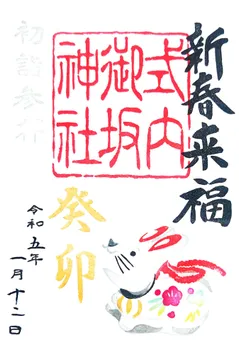 新春来福
式内
御坂
神社
癸卯
初詣参拝
令和五年
一月十二日